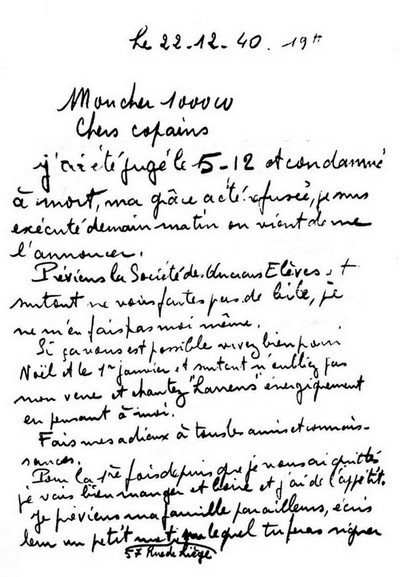 Le 22-12-40. 19h
Mon cher 1000W
Chers copains
j'ai été jugé le 5-12 et condamné
à mort, ma grâce a été refusée, je suis
exécuté demain matin on vient de me
l'annoncer.
Préviens la Société des Anciens Elèves, et
surtout ne vous faites pas de bile, je
ne m'en fais pas moi même.
Si ça vous est possible vivez bien pour
Noël et le 1er janvier et surtout n'oubliez pas
mon verre et chantez "Larrens" énergiquement
en pensant à moi.
Fais mes adieux à tous les amis et connais-
sances.
Pour la 1re fois depuis que je vous ai quittés
je vais bien manger et boire et j'ai de l'appétit.
Je préviens ma famille par ailleurs, écris
leur un petit mot que tu feras signer
57 Rue de Liège